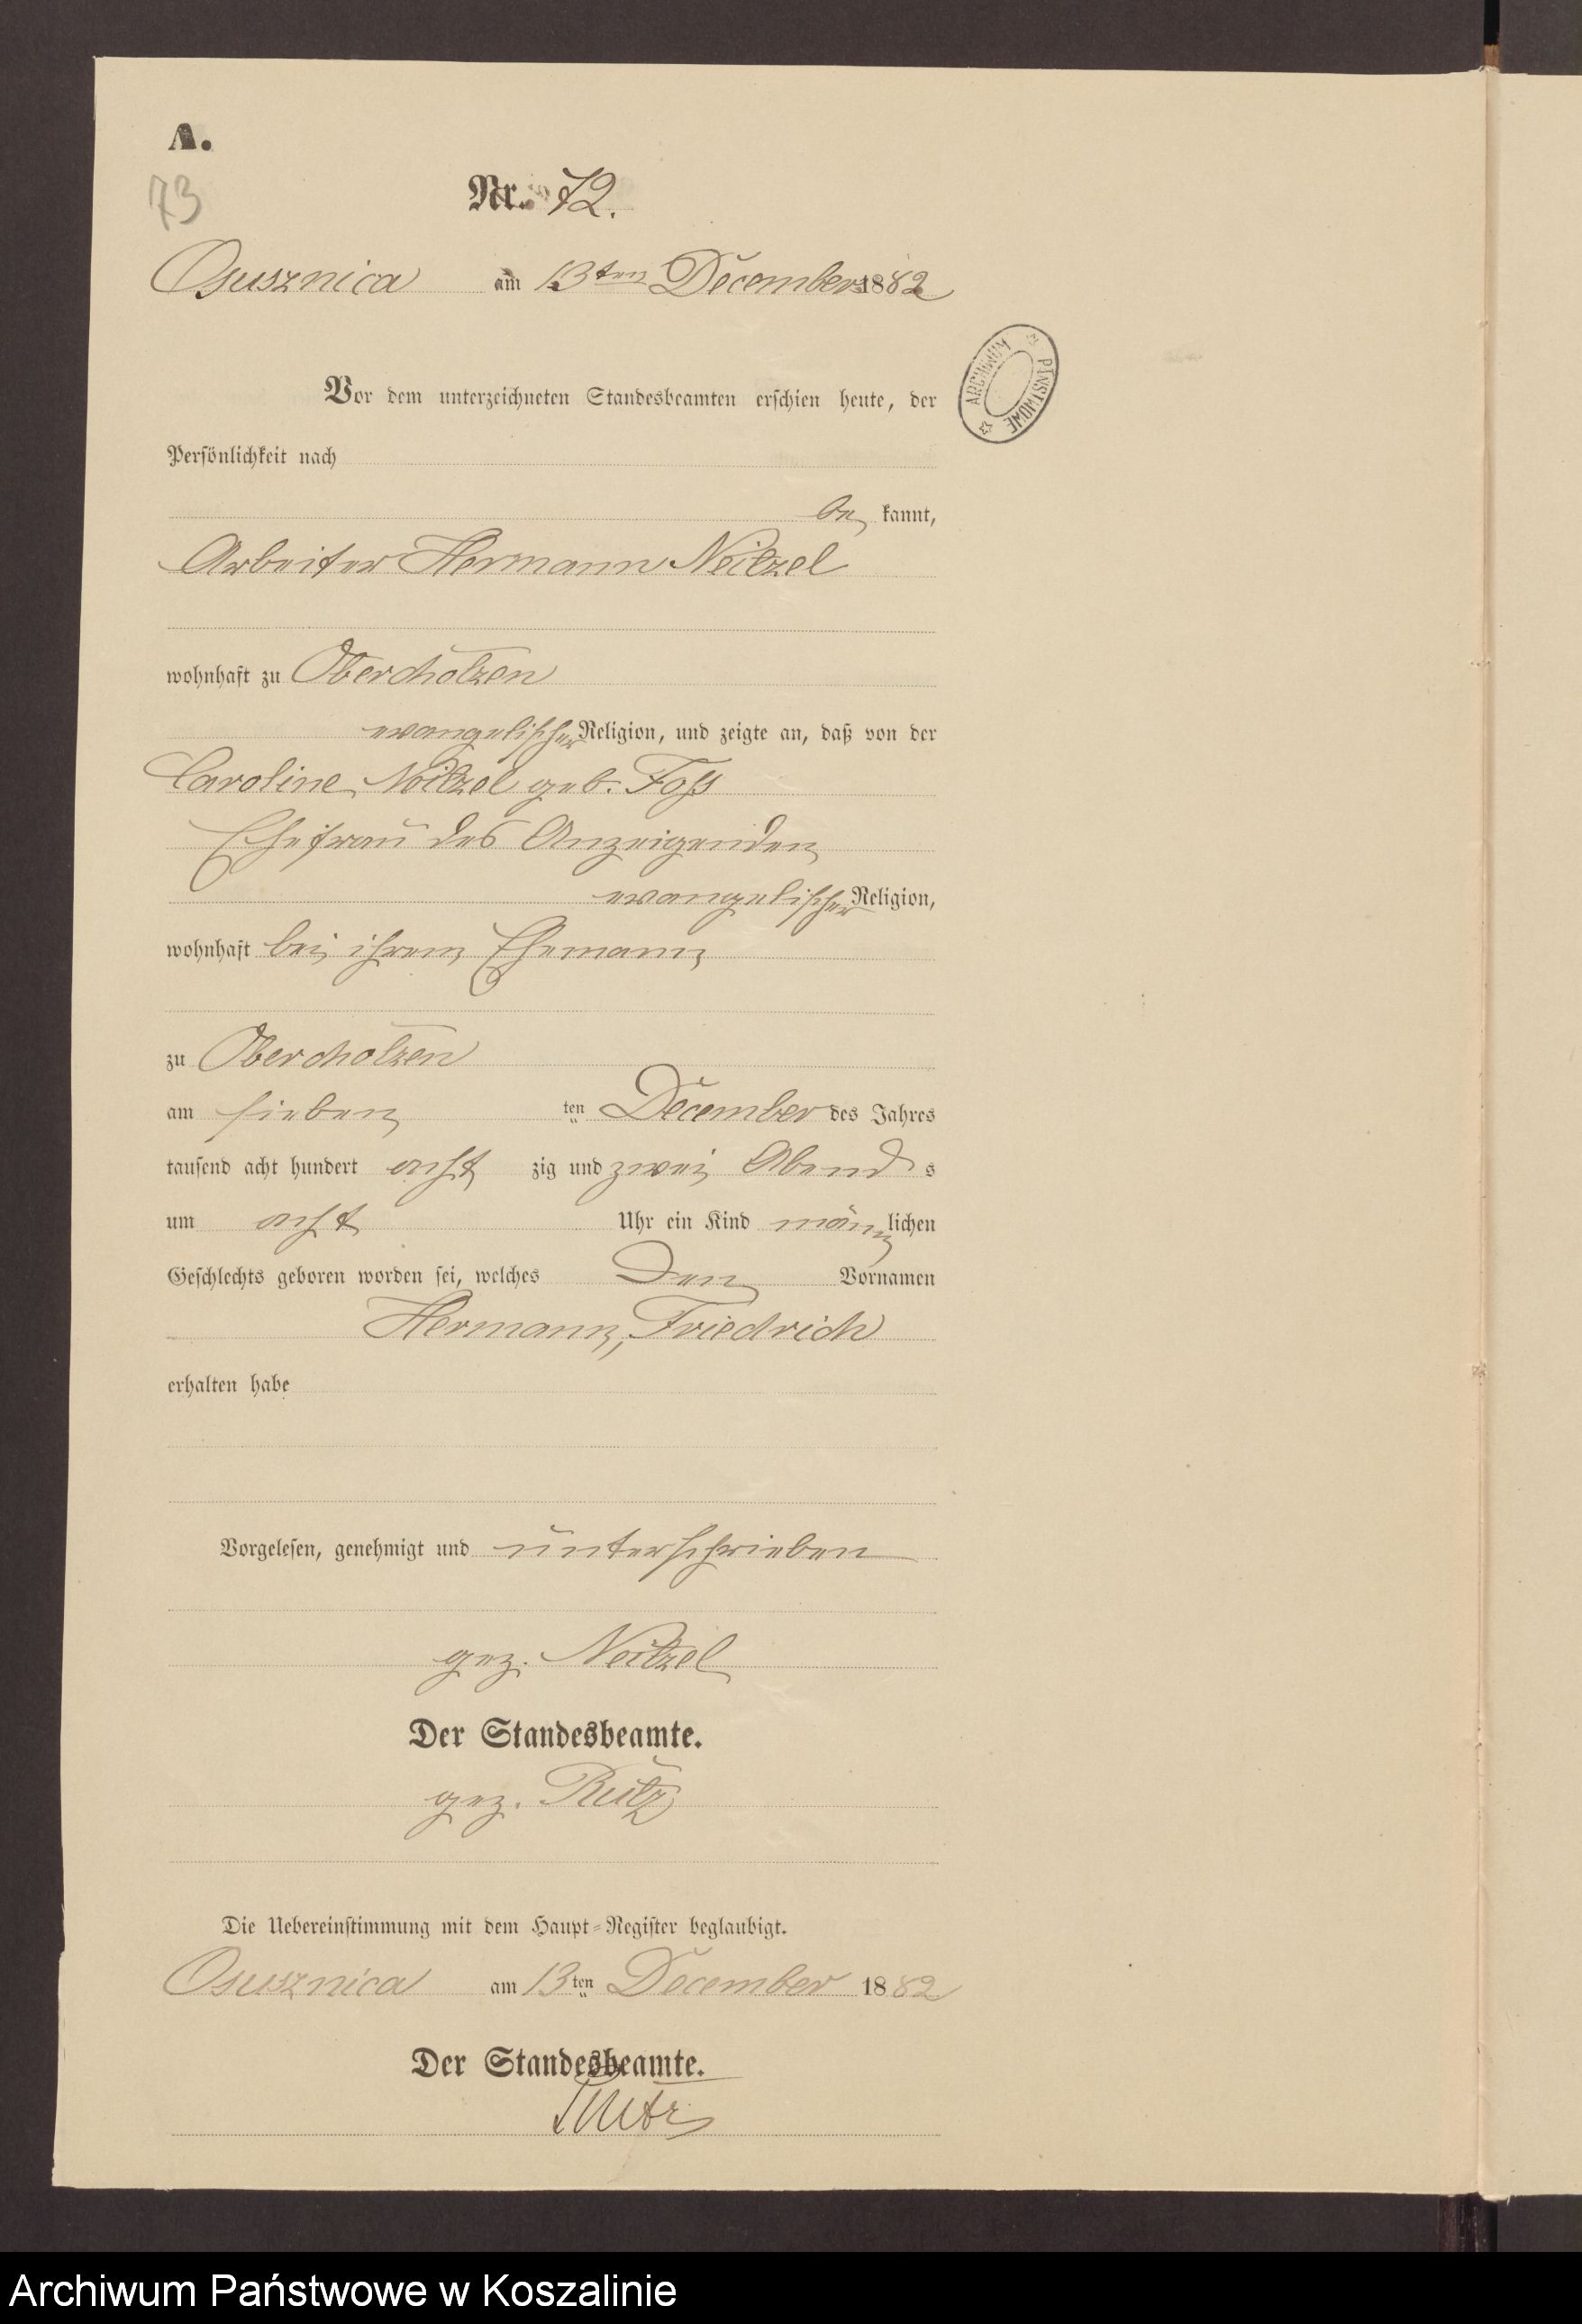 A.
73
Nr. 72.
Osusznica am 13ten December 1882
ARCHIWUM PAŃSTWOWE
Vor dem unterzeichneten Standesbeamten erschien heute, der
Persönlichkeit nach
be kannt,
Arbeiter Hermann Neitzel
wohnhaft zu Obercholzen
evangelischer Religion, und zeigte an, daß von der
Caroline Neitzel geb. Foß
Ehefrau des Anzeigenden
evangelischer Religion,
wohnhaft bei ihrem Ehemann
zu Obercholzen
am sieben ten December des Jahres
tausend acht hundert acht zig und zwei Abends
um acht Uhr ein Kind männlichen
Geschlechts geboren worden sei, welches den Vornamen
Hermann, Friedrich
erhalten habe
Vorgelesen, genehmigt und unterschrieben
gez. Neitzel
Der Standesbeamte.
gez. Rutz
Die Uebereinstimmung mit dem Haupt-Register beglaubigt.
Osusznica am 13ten December 1882
Der Standesbeamte.
Rutz
Archiwum Państwowe w Koszalinie